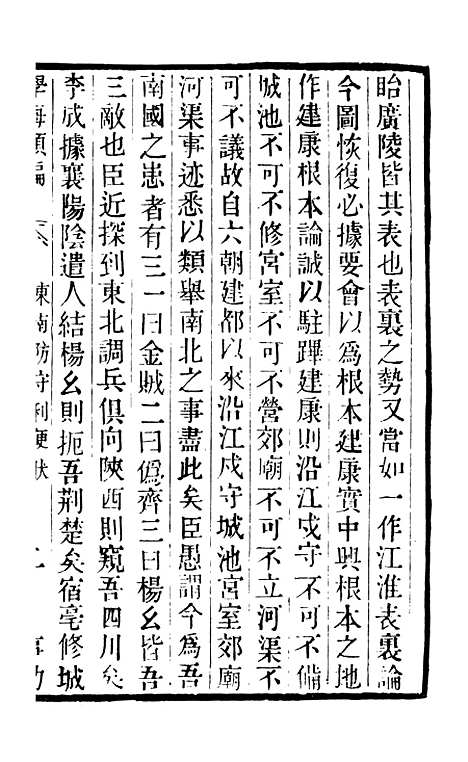 眙廣陵皆其表也表裏之勢又當如一作江淮表裏論
今圖恢復必據要會以爲根本建康實中興根本之地
作建康根本論誠以駐蹕建康則沿江戍守不可不備
城池不可不修宮室不可不營郊廟不可不立河渠不
可不議故自六朝建都以來沿江戍守城池宮室郊廟
河渠事迹悉以類舉南北之事盡此矣臣愚謂今爲吾
南國之患者有三一曰金賊二曰僞齊三曰楊幺皆吾
三敵也臣近探到東北調兵俱向陝西則窺吾四川矣
李成據襄陽陰遣人結楊幺則扼吾荆楚矣宿亳修城
學海類編
東南防守利便狀